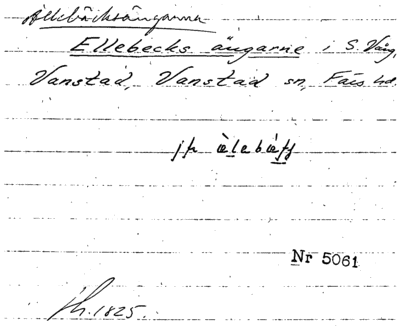 Ällebäcksängarna
Ellebecks ängarne i S. Vång,
Vanstad, Vanstad sn, Färs hd.
jfr
Nr 5061
h. 1825.